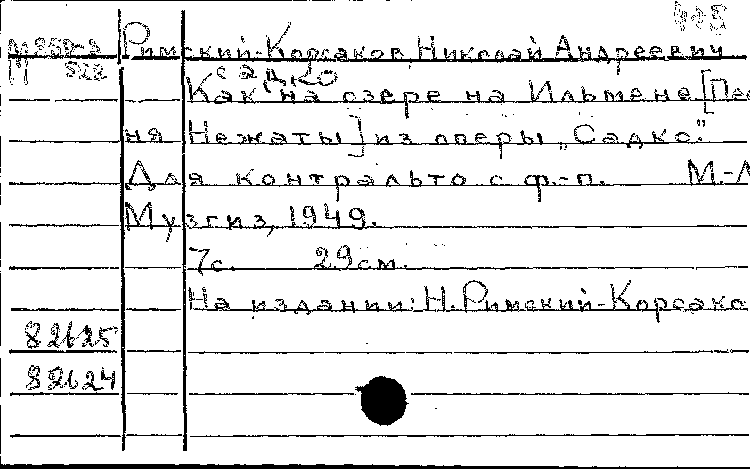 Римский-Корсаков, Николай Андреевич
Садко
Как на озере на Ильмене [Пес
ня Нежаты] из оперы „Садко."
Для контральто с ф.-п. М.-Л
Музгиз, 1949.
7с. 29см.
На издании: Н. Римский-Корсако
82625
82624